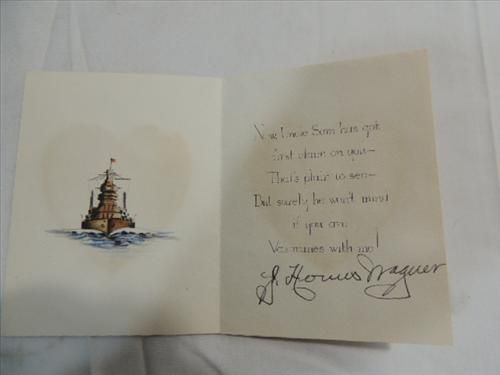 Now Uncle Sam has got
first claim on you—
That's plain to see—
But surely he won't mind
if you are
Valentines with me!
Wagner